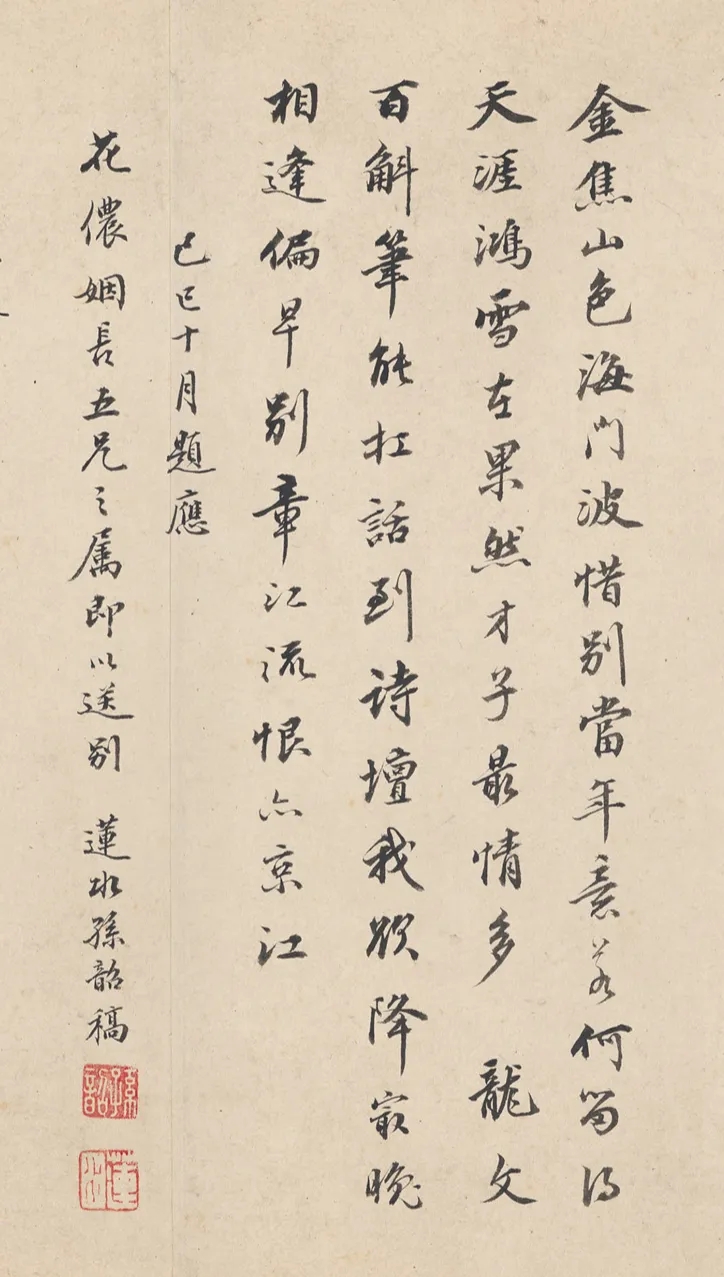 金焦山色海門波惜别當年意若何留得
天涯鴻雪在果然才子最情多 龍文
百斛筆能扛話到詩壇我欲降最晚
相逢偏早别章江流恨亦京江
己巳十月題應
花儂姻長五兄之属即以送别 蓮水孫韶稿
孫韶